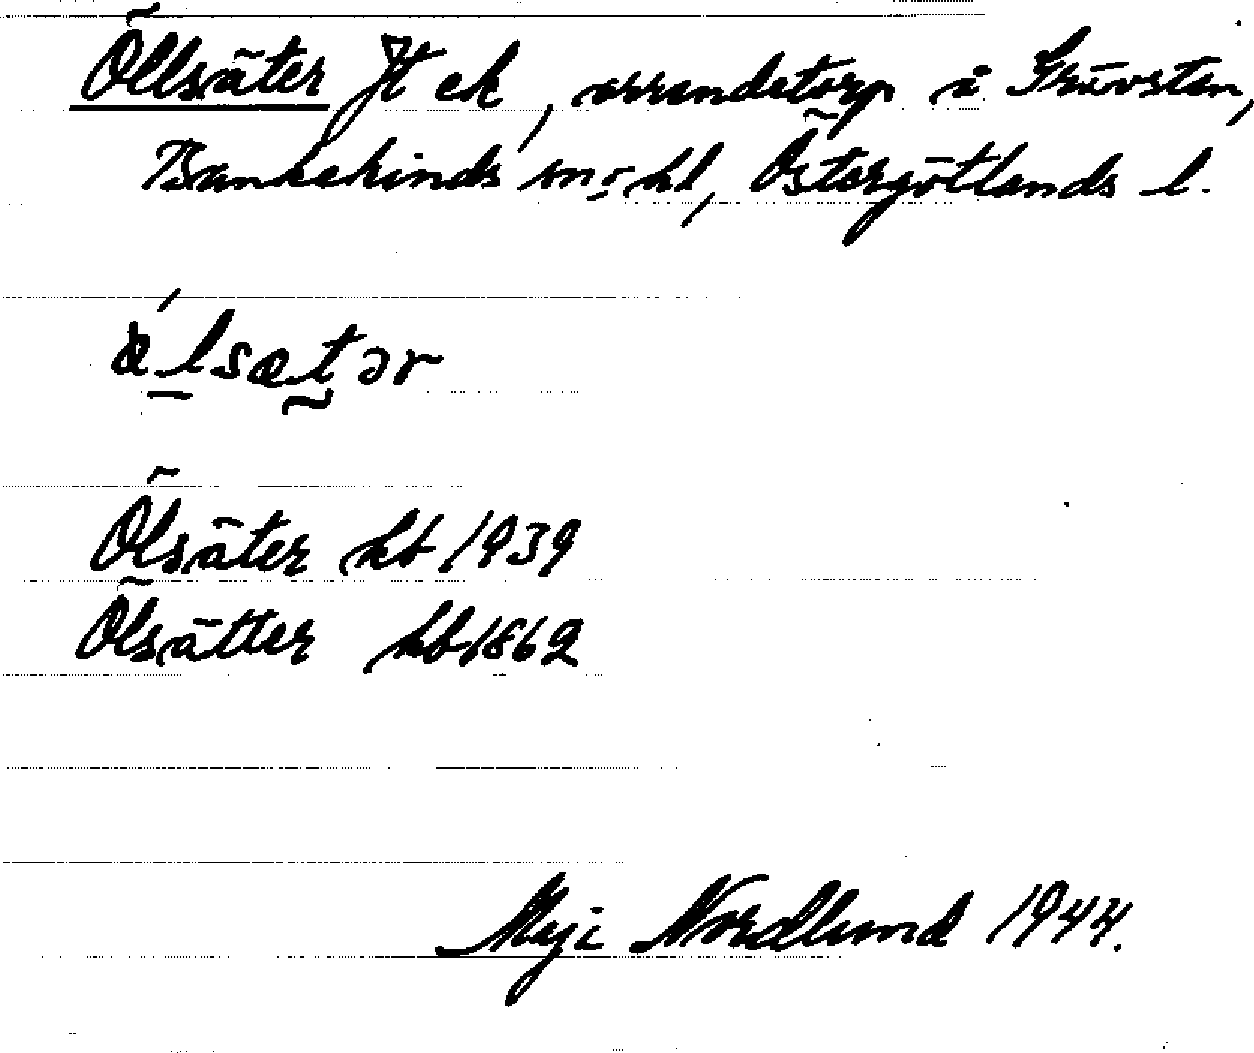 Öllsäter Jt ek, arrendetorp å Grävsten,
Bankekinds sn o hd, Östergötlands l.
ǽlsætər
Ölsäter hb 1939
Ölsätter hb 1862
Maji Nordlund 1944.